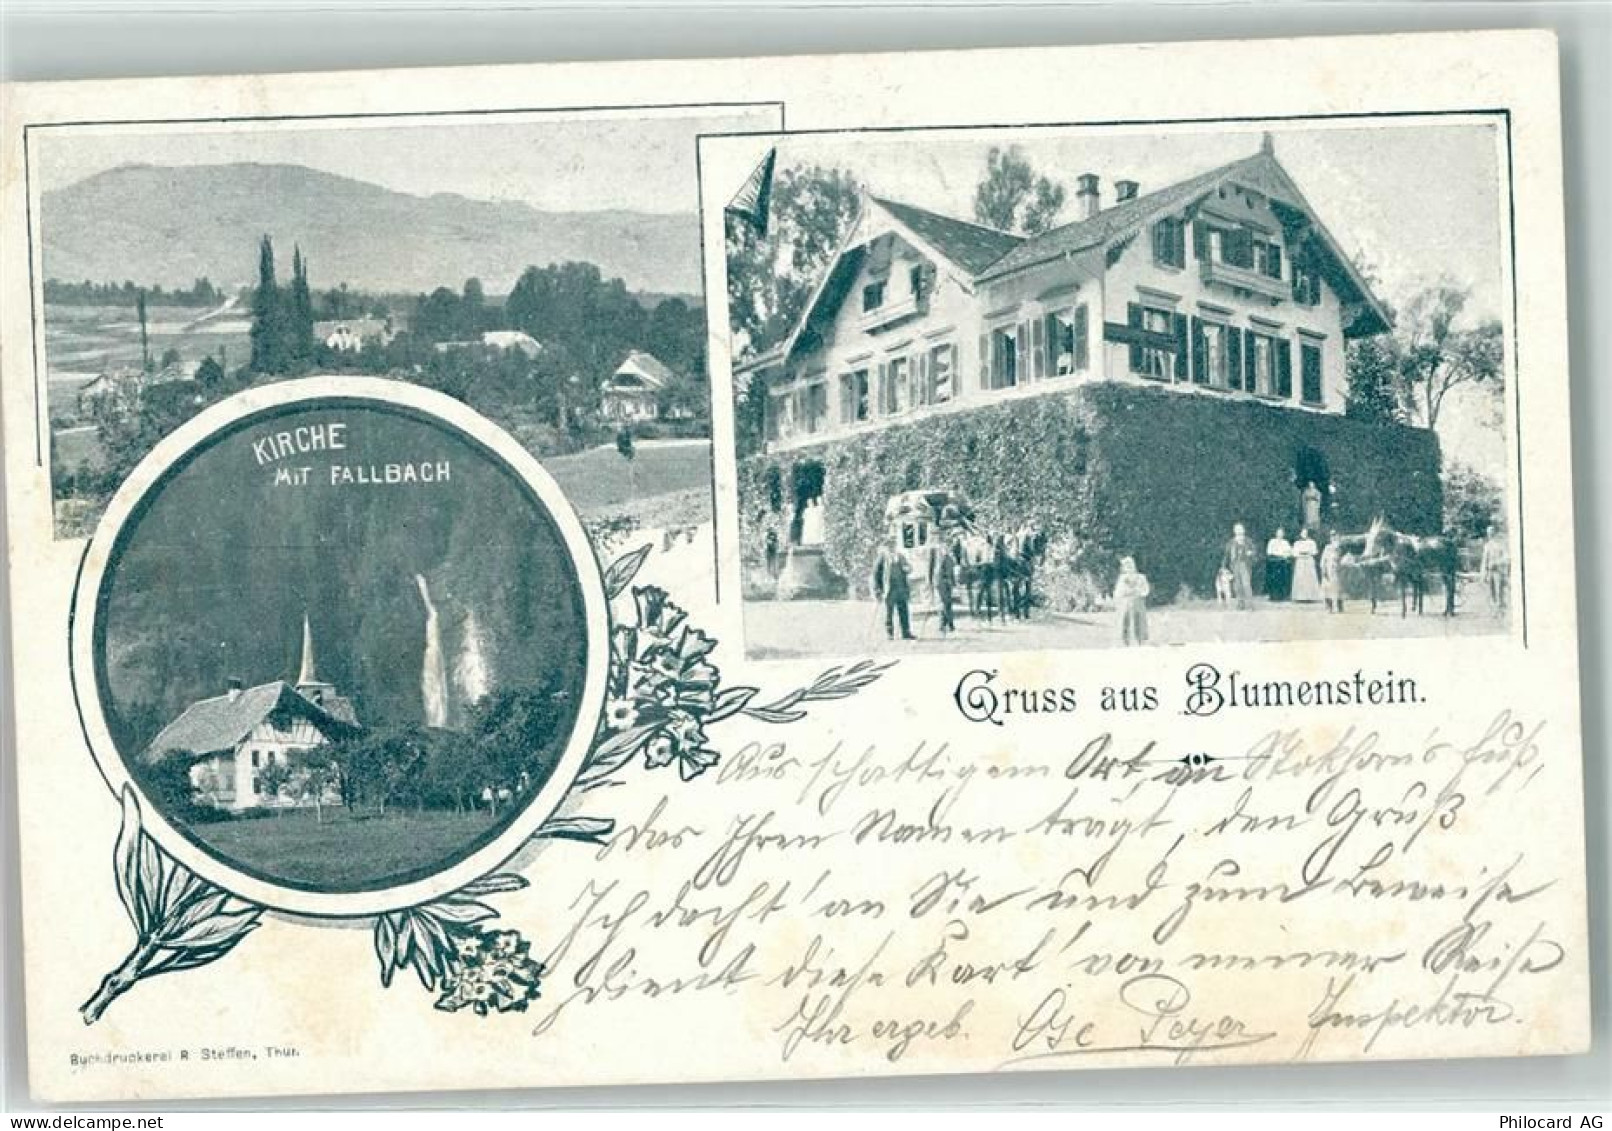 KIRCHE
MIT FALLBACH
Gruss aus Blumenstein.
Aus schattigem Ort, an Stokhorn's Fuß,
Das Ihren Namen trägt, den Gruß
Ich dacht' an Sie und zum Beweise
Dient diese Kart' von meiner Reise
Ihr ergeb. Osc Peyer Inspektor.
Buchdruckerei R. Steffen, Thun.
Philocard AG